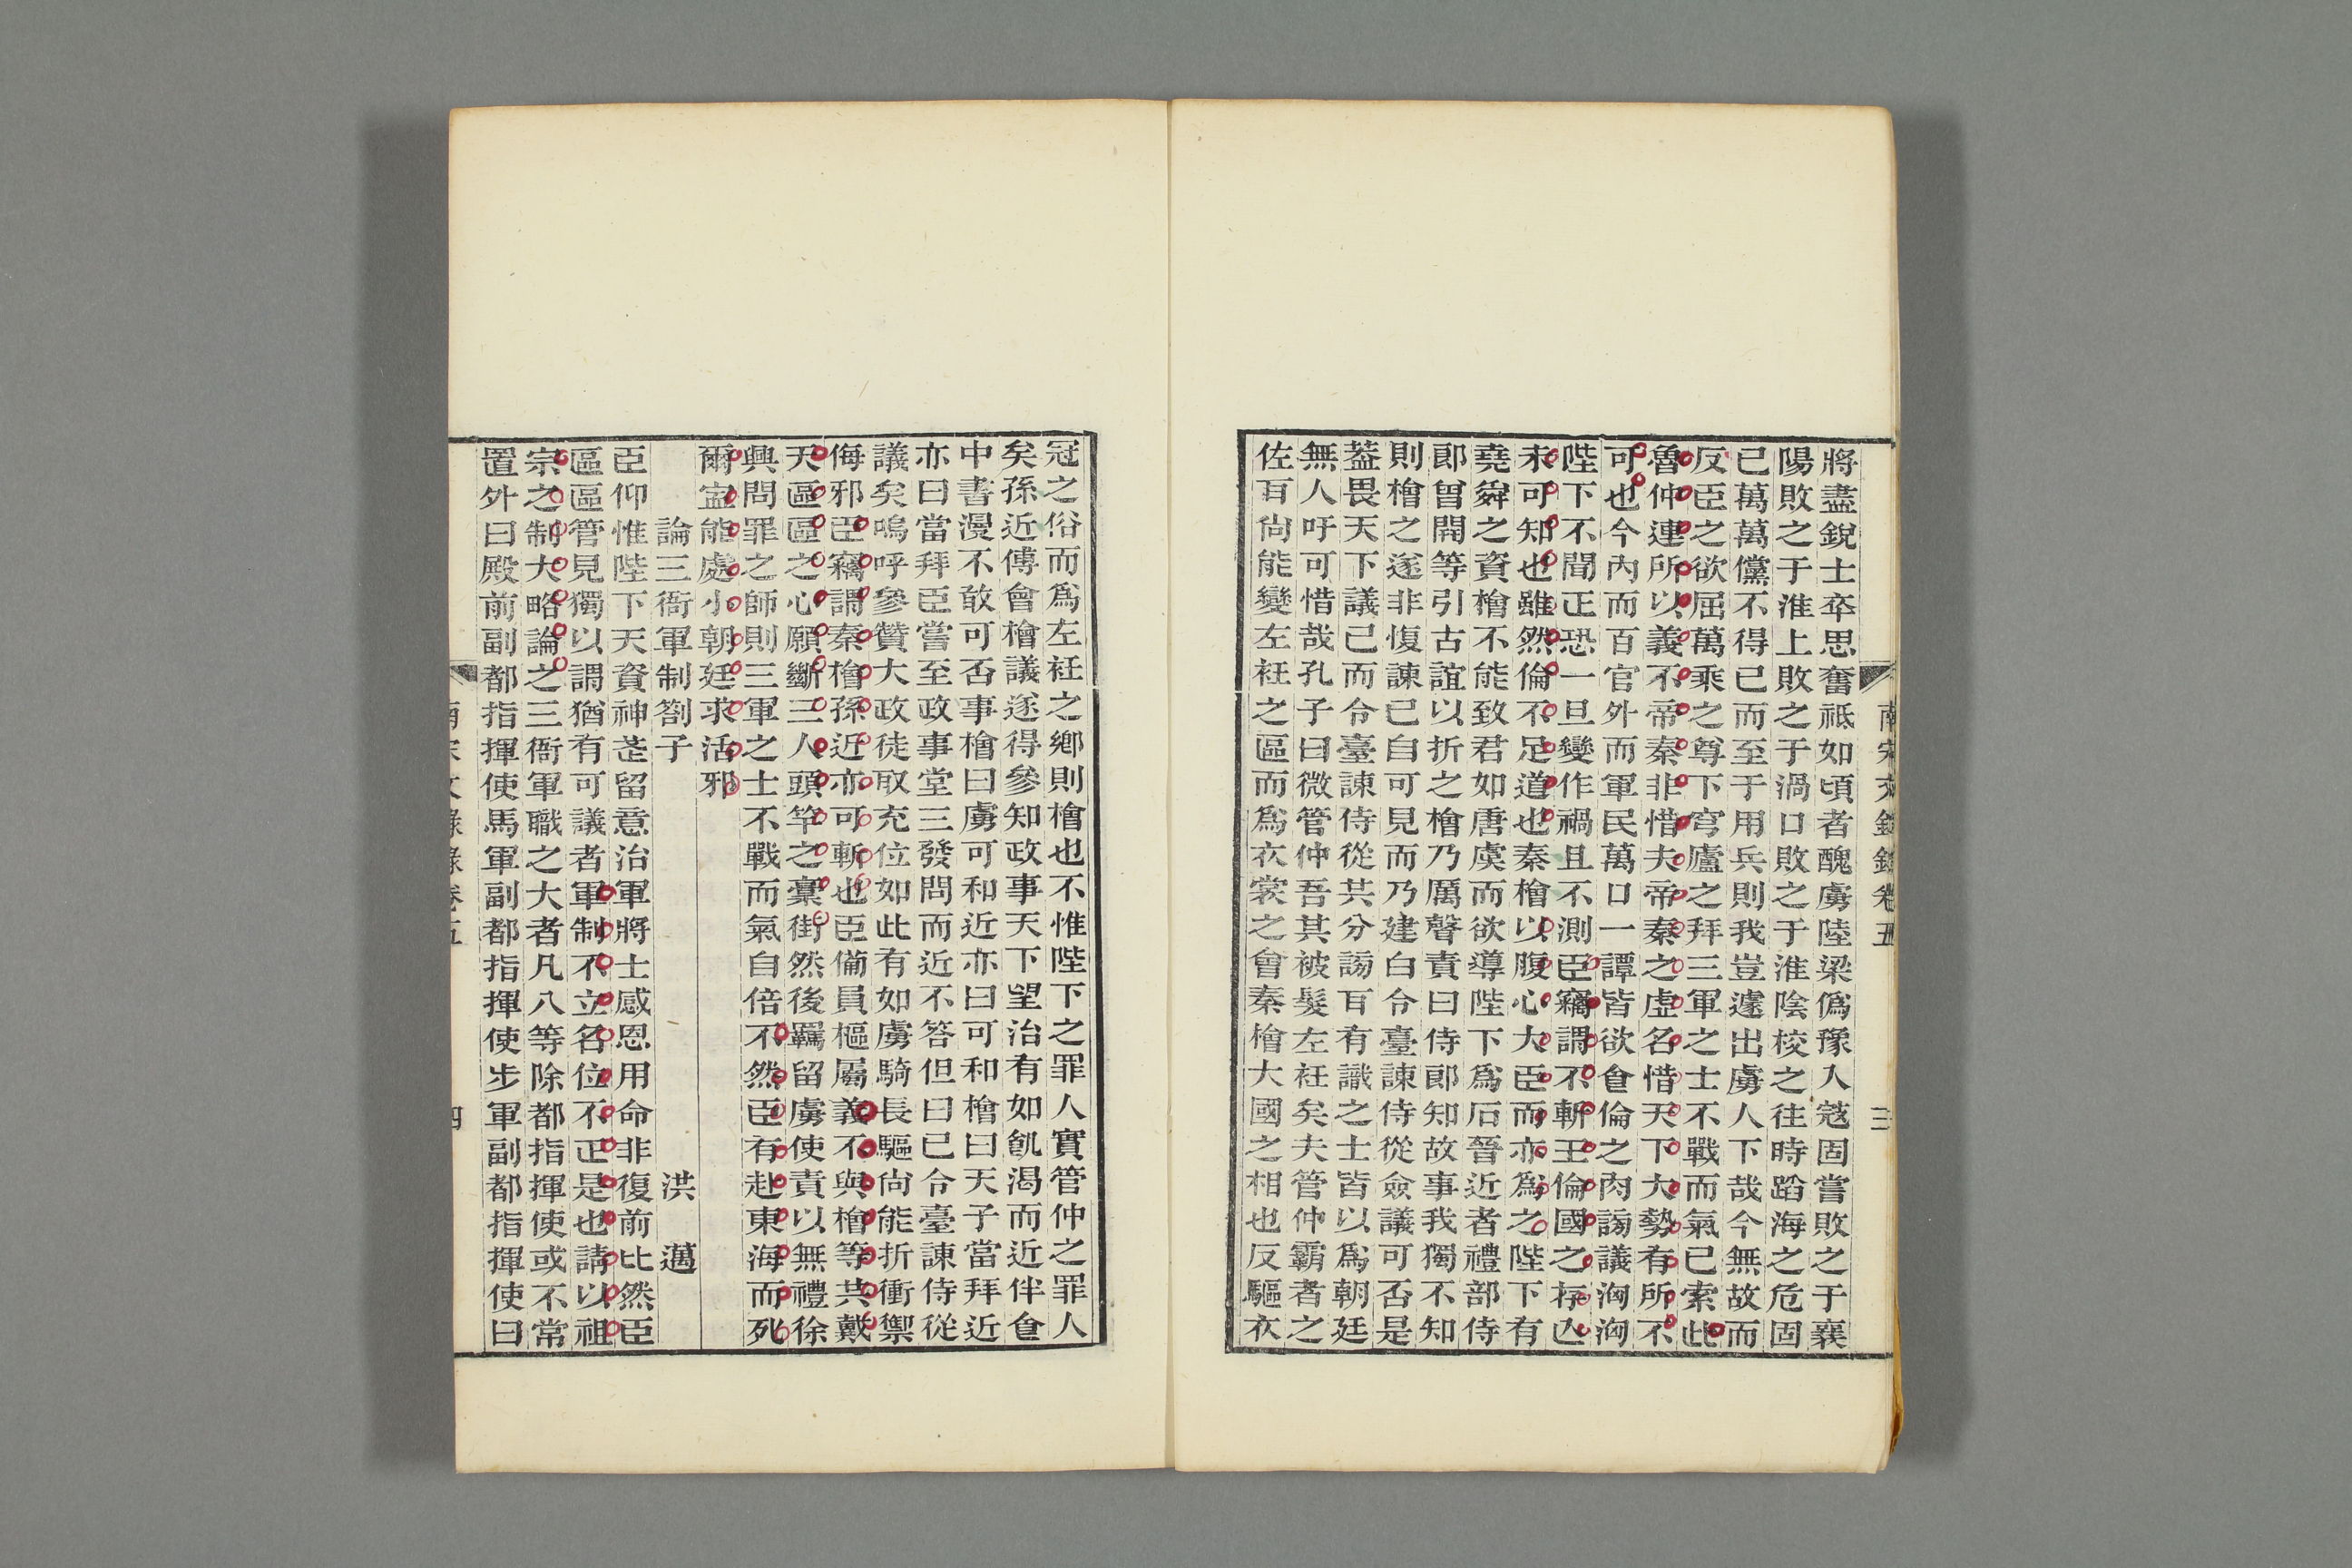 將盡銳士卒思奮祗如頃者醜虜陸梁僞豫入寇固嘗敗之于襄
陽敗之于淮上敗之于渦口敗之于淮陰校之往時蹈海之危固
已萬萬儻不得已而至于用兵則我豈遽出虜人下哉今無故而
反臣之欲屈萬乘之尊下穹廬之拜三軍之士不戰而氣已索此
魯仲連所以義不帝秦非惜夫帝秦之虛名惜天下大勢有所不
可也今內而百官外而軍民萬口一譚皆欲食倫之肉謗議洶洶
陛下不聞正恐一旦變作禍且不測臣竊謂不斬王倫國之存亾
未可知也雖然倫不足道也秦檜以腹心大臣而亦爲之陛下有
堯舜之資檜不能致君如唐虞而欲導陛下爲石晉近者禮部侍
郎曾開等引古誼以折之檜乃厲聲責曰侍郎知故事我獨不知
則檜之遂非愎諫已自可見而乃建白令臺諫侍從僉議可否是
葢畏天下議己而令臺諫侍從共分謗耳有識之士皆以爲朝廷
無人吁可惜哉孔子曰微管仲吾其被髮左衽矣夫管仲霸者之
佐耳尙能變左衽之區而爲衣裳之會秦檜大國之相也反驅衣
南宋文錄錄卷五
三
冠之俗而爲左衽之鄕則檜也不惟陛下之罪人實管仲之罪人
矣孫近傅會檜議遂得參知政事天下望治有如飢渴而近伴食
中書漫不敢可否事檜曰虜可和近亦曰可和檜曰天子當拜近
亦曰當拜臣嘗至政事堂三發問而近不答但曰已令臺諫侍從
議矣嗚呼參贊大政徒取充位如此有如虜騎長驅尙能折衝禦
侮邪臣竊謂秦檜孫近亦可斬也臣備員樞屬義不與檜等共戴
天區區之心願斷三人頭竿之藁街然後羈留虜使責以無禮徐
興問罪之師則三軍之士不戰而氣自倍不然臣有赴東海而死
爾寍能處小朝廷求活邪
論三衙軍制劄子 洪邁
臣仰惟陛下天資神莅留意治軍將士感恩用命非復前比然臣
區區管見獨以謂猶有可議者軍制不立名位不正是也請以祖
宗之制大略論之三衙軍職之大者凡八等除都指揮使或不常
置外曰殿前副都指揮使馬軍副都指揮使步軍副都指揮使曰
南宋文錄錄卷五
四